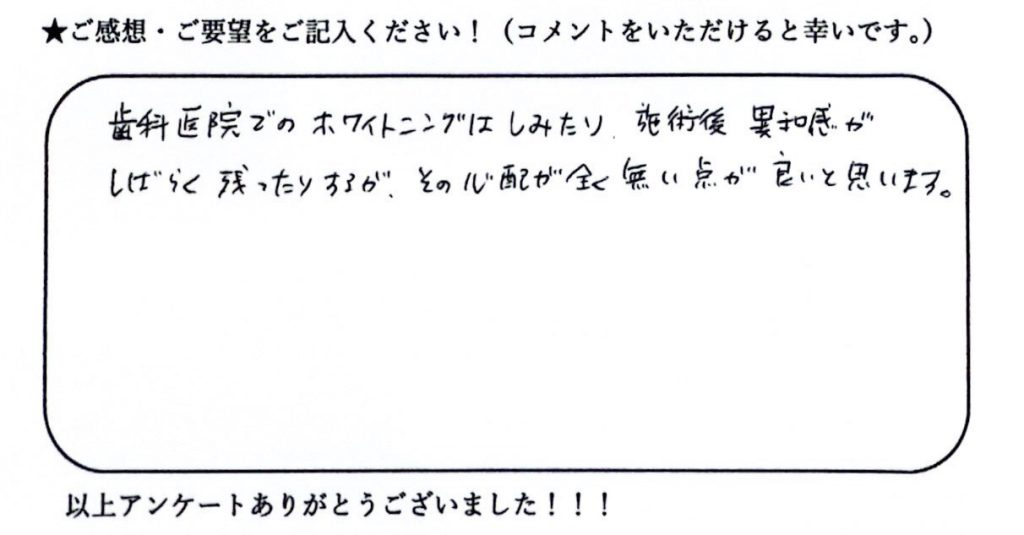 ★ご感想・ご要望をご記入ください！（コメントをいただけると幸いです。）
歯科医院でのホワイトニングはしみたり、施術後 異和感が
しばらく残ったりするが、その心配が全く無い点が良いと思います。
以上アンケートありがとうございました！！！